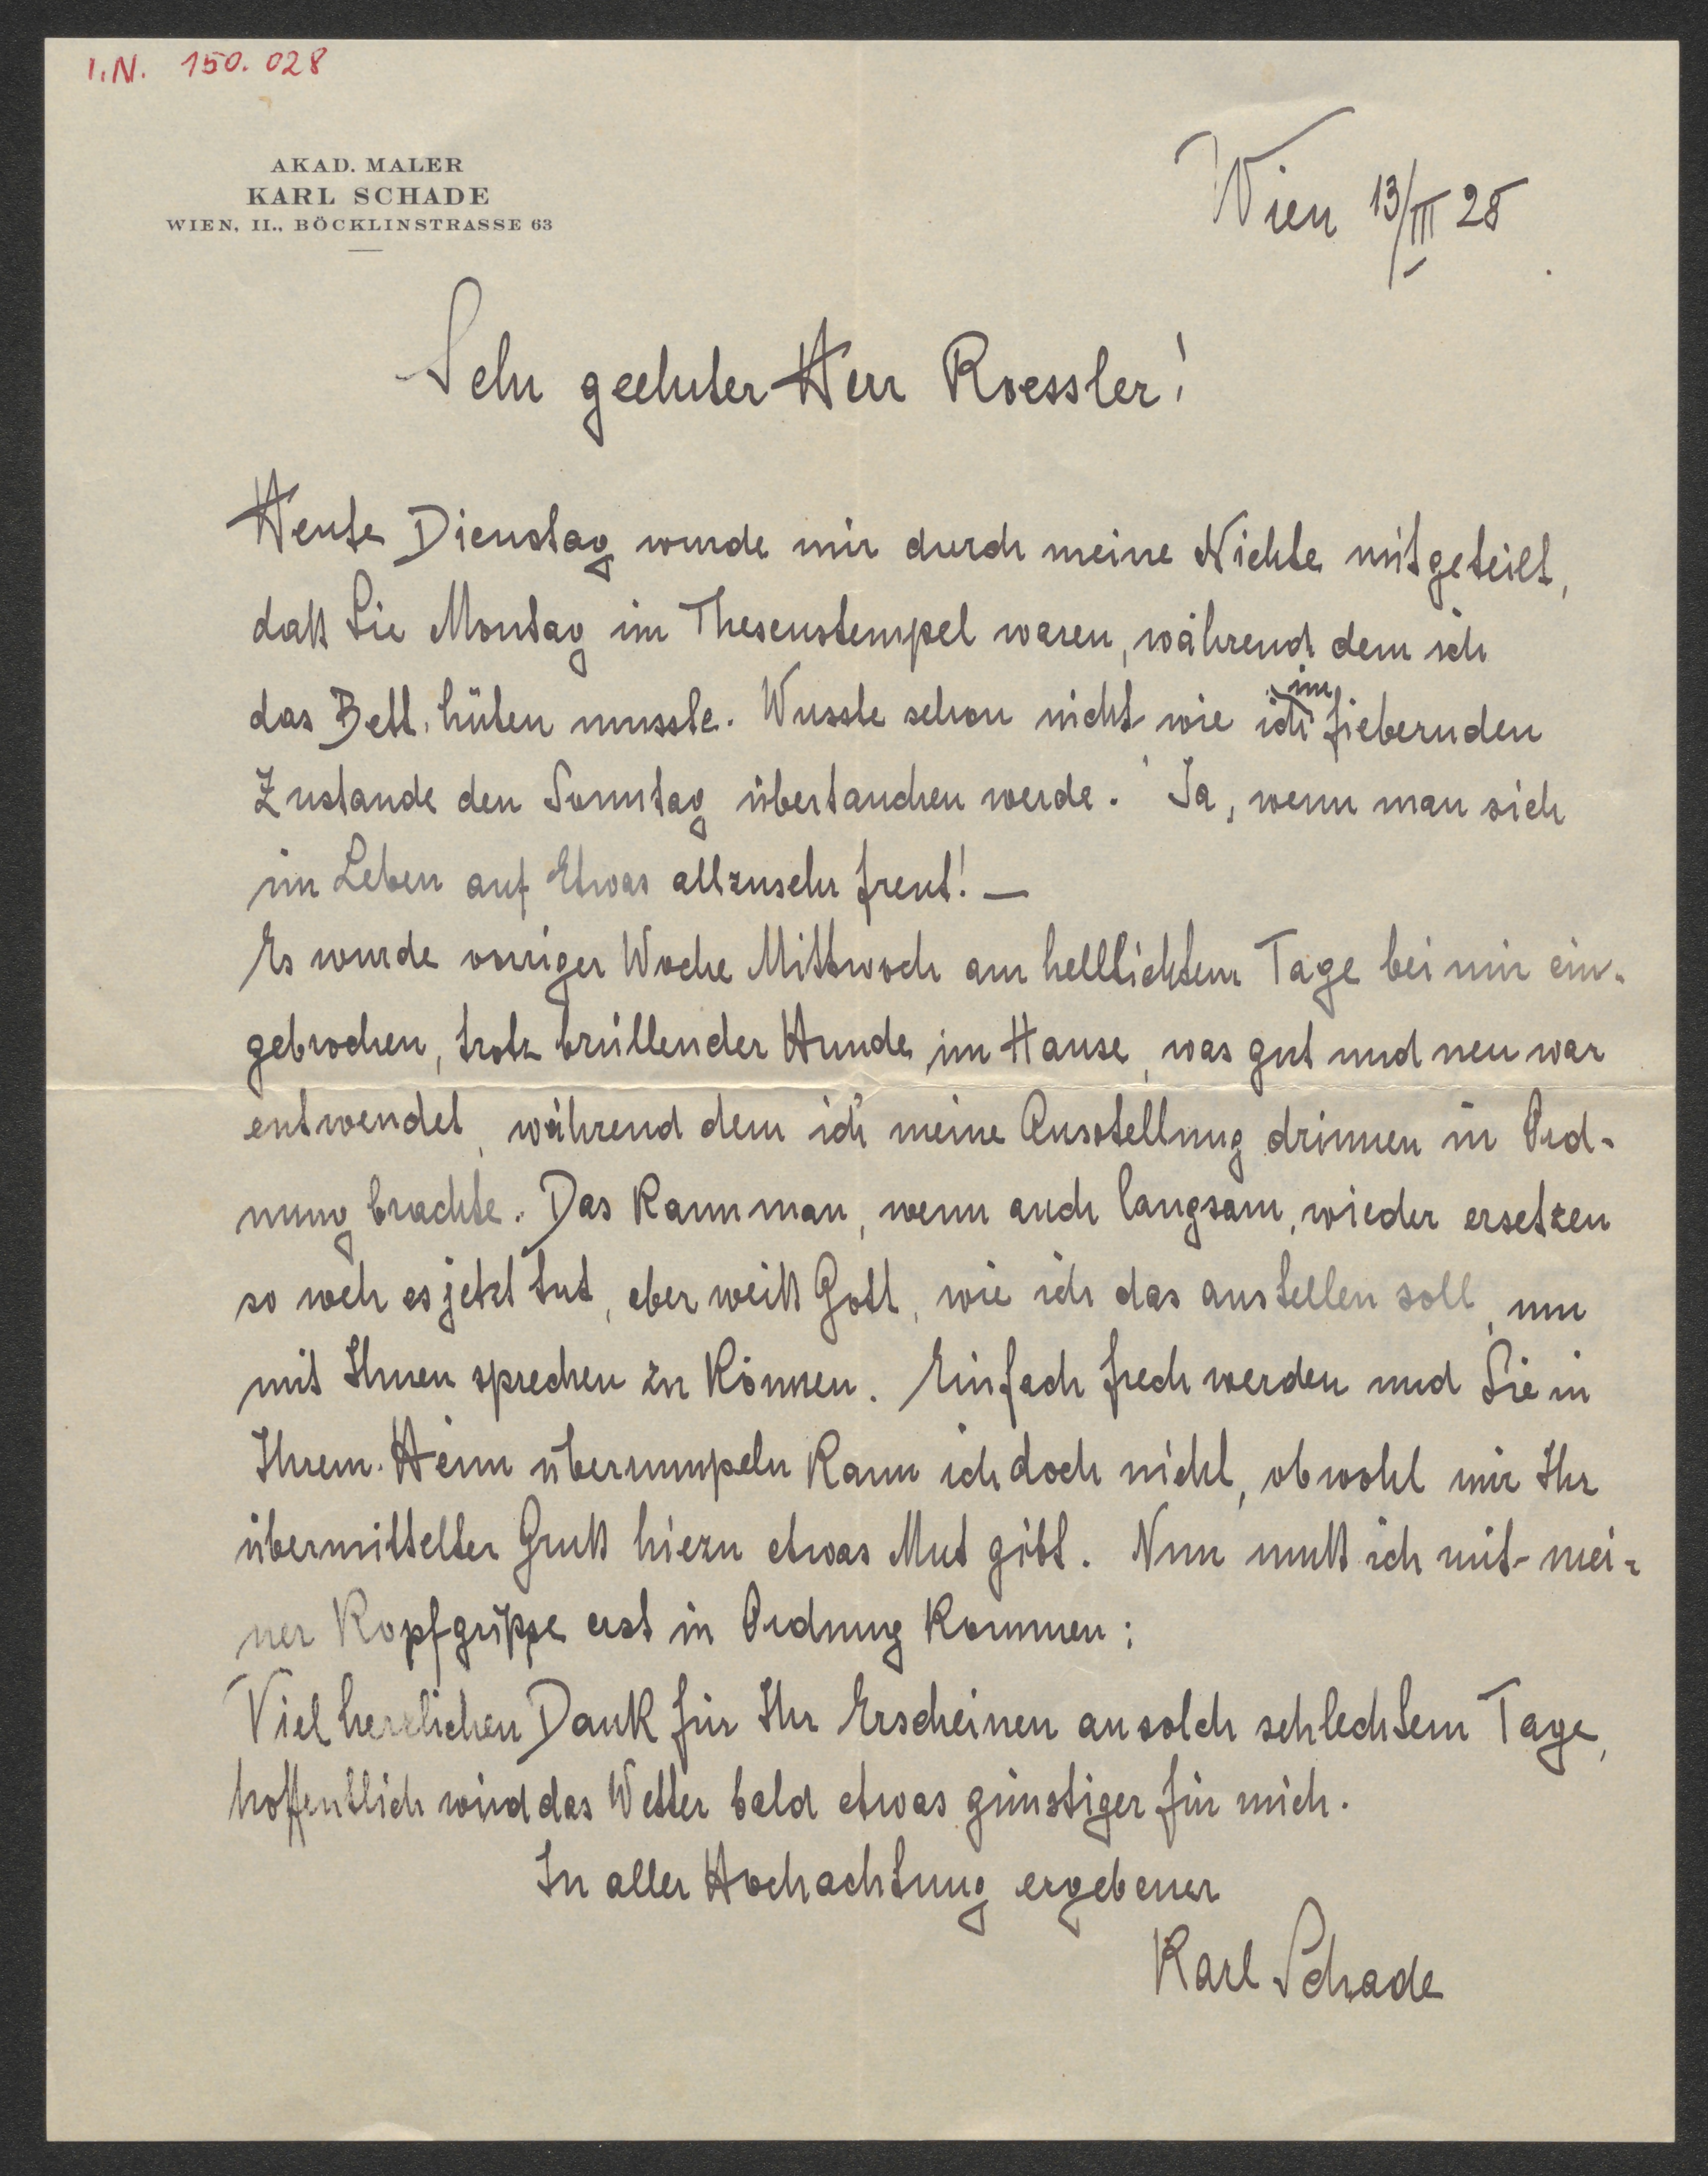 I.N. 150.028
AKAD. MALER
KARL SCHADE
WIEN, II., BÖCKLINSTRASSE 63
Wien 13/III 28
Sehr geehrter Herr Roessler!
Heute Dienstag wurde mir durch meine Nichte mitgeteilt,
daß Sie Montag im Theseustempel waren, während dem ich
das Bett hüten musste. Wusste schon nicht wie ich im fiebernden
Zustande den Sonntag übertauchen werde. Ja, wenn man sich
im Leben auf Etwas allzusehr freut! —
Es wurde voriger Woche Mittwoch am helllichtem Tage bei mir ein-
gebrochen, trotz brüllender Hunde im Hause, was gut und neu war
entwendet, während dem ich meine Ausstellung drinnen in Ord-
nung brachte. Das kann man, wenn auch langsam, wieder ersetzen
so weh es jetzt tut, aber weiß Gott, wie ich das anstellen soll, um
mit Ihnen sprechen zu können. Einfach frech werden und Sie in
Ihrem Heim überrumpeln kann ich doch nicht, obwohl mir Ihr
übermittelter Gruß hiezu etwas Mut gibt. Nun muß ich mit mei-
ner Kopfgrippe erst in Ordnung kommen;
Viel herzlichen Dank für Ihr Erscheinen an solch schlechtem Tage,
hoffentlich wird das Wetter bald etwas günstiger für mich.
In aller Hochachtung ergebener
Karl Schade